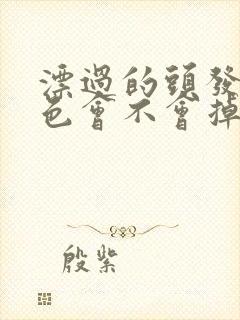 漂過的頭發
色會不會掉
殷紫